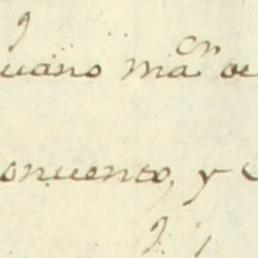 uano macn de
onuento, y